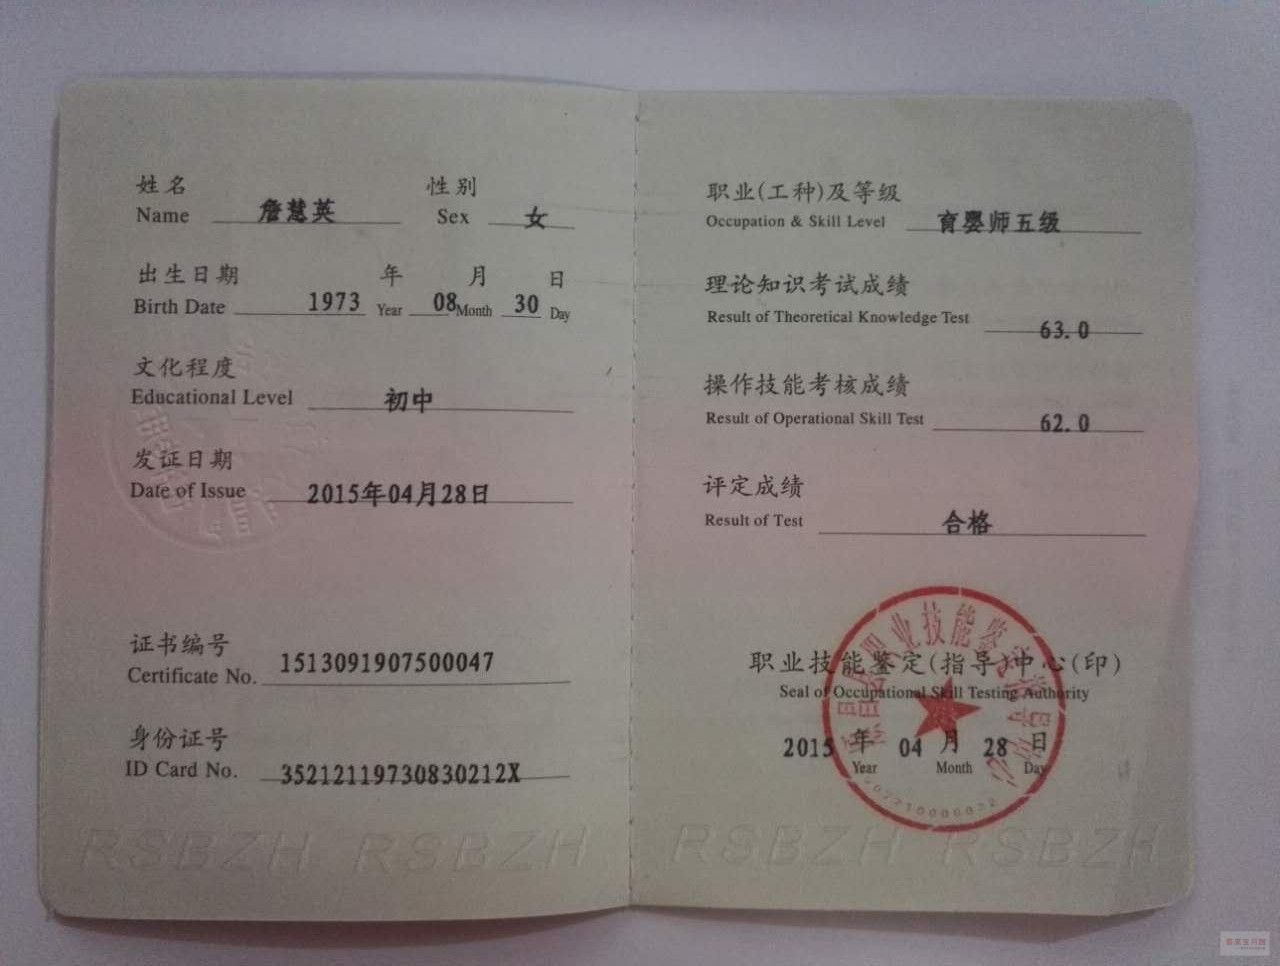 姓名 性别
Name 詹慧英 Sex 女
出生日期 年 月 日
Birth Date 1973 Year 08 Month 30 Day
文化程度
Educational Level 初中
发证日期
Date of Issue 2015年04月28日
证书编号
Certificate No. 1513091907500047
身份证号
ID Card No. 35212119730830212X
RSBZH RSBZH
职业(工种)及等级
Occupation & Skill Level 育婴师五级
理论知识考试成绩
Result of Theoretical Knowledge Test 63.0
操作技能考核成绩
Result of Operational Skill Test 62.0
评定成绩
Result of Test 合格
职业技能鉴定(指导)中心(印)
Seal of Occupational Skill Testing Authority
2015 年 04 月 28 日
Year Month Day
职业技能鉴定指导中心
RSBZH RSBZH